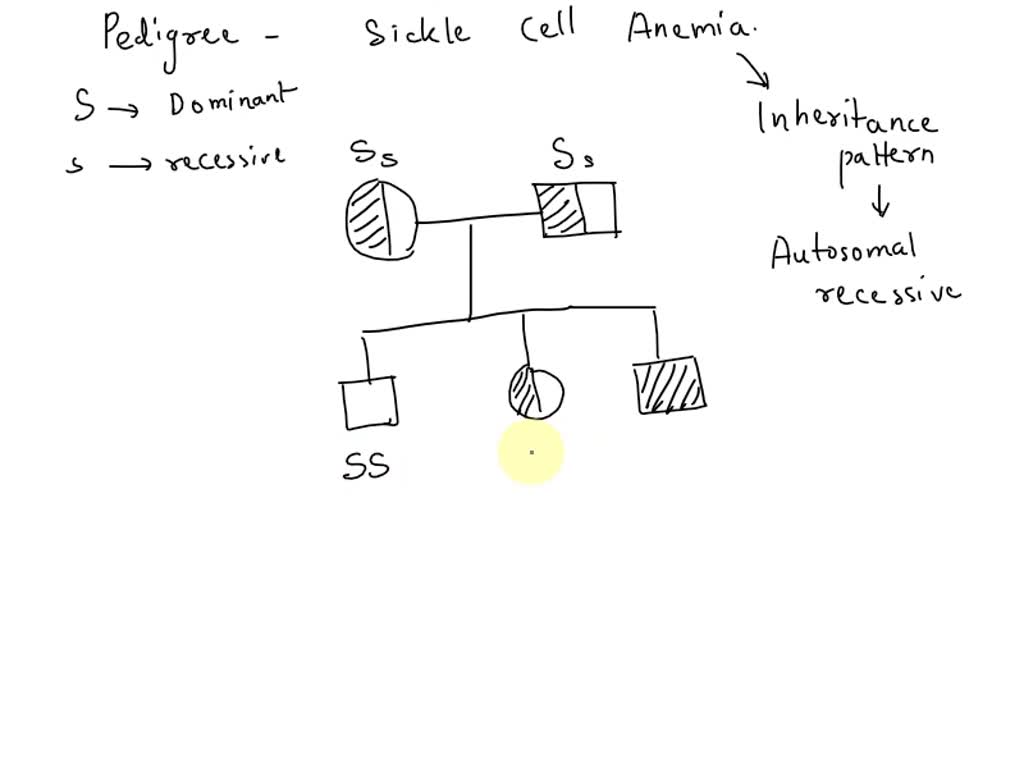 Pedigree - Sickle Cell Anemia.
S → Dominant
s → recessive
Inheritance
pattern
↓
Autosomal
recessive
Ss
Ss
SS